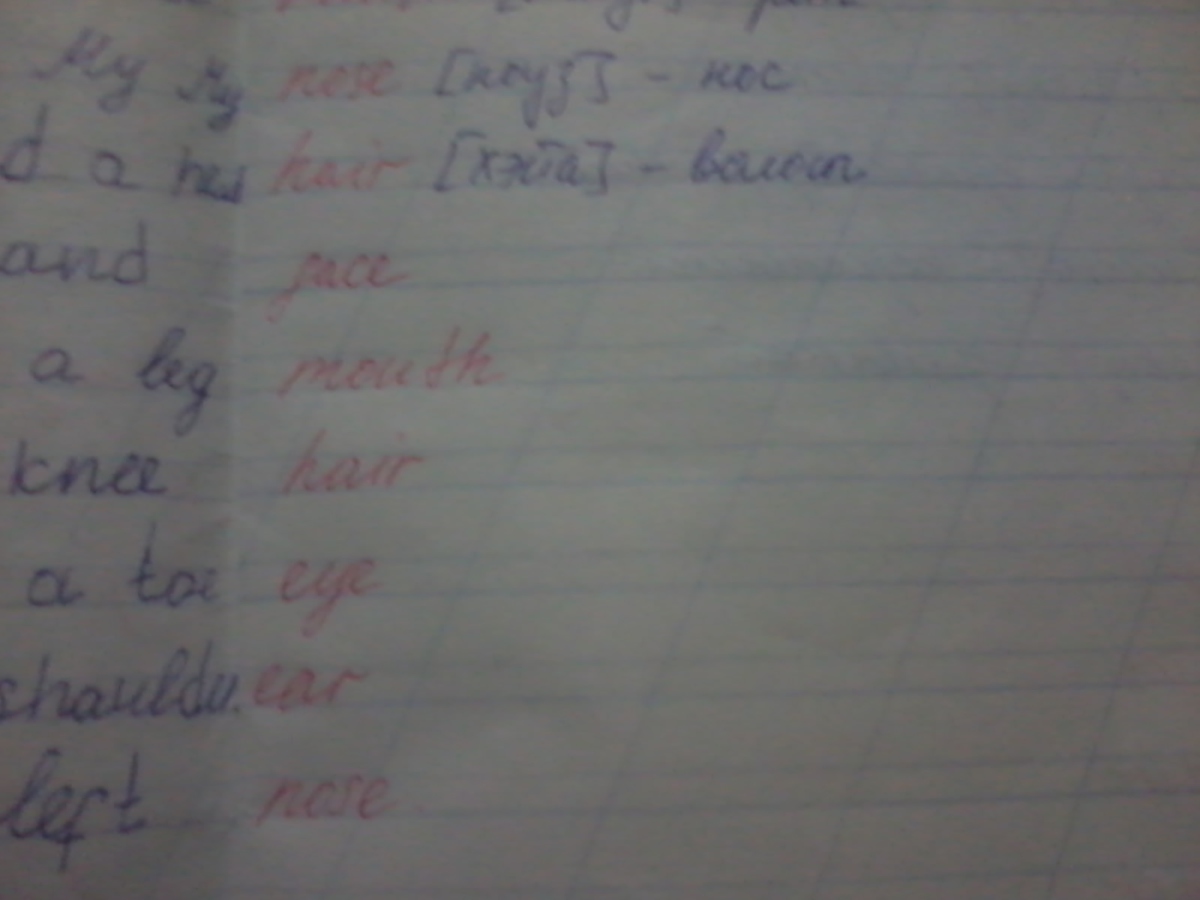 My My nose [ноуз] - нос
d a hair [хэйа] - волосы
and face
a leg mouth
knee hair
a toe eye
ear
left nose